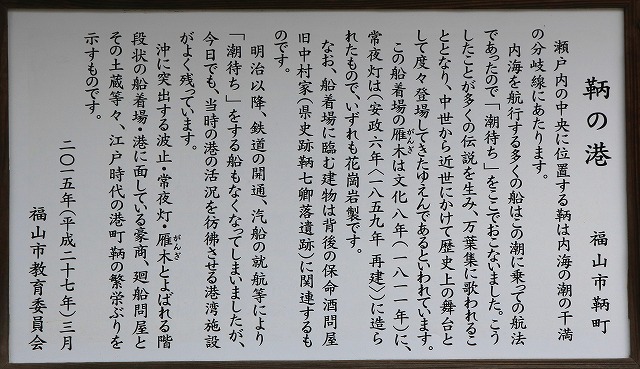 鞆の港
福山市鞆町
瀬戸内の中央に位置する鞆は内海の潮の干満
の分岐線にあたります。
内海を航行する多くの船はこの潮に乗っての航法
であったので「潮待ち」をここでおこないました。こう
したことが多くの伝説を生み、万葉集に歌われるこ
ととなり、中世から近世にかけて歴史上の舞台と
して度々登場してきたゆえんであるといわれています。
この船着場の雁木は文化八年(一八一一年)に、
がんぎ
常夜灯は〈安政六年〈一八五九年 再建〉〉に造ら
れたもので、いずれも花崗岩製です。
なお、船着場に臨む建物は背後の保命酒問屋
旧中村家(県史跡鞆七卿落遺跡)に関連するも
のです。
明治以降、鉄道の開通、汽船の就航等により
「潮待ち」をする船もなくなってしまいましたが、
今日でも、当時の港の活況を彷彿させる港湾施設
がよく残っています。
沖に突出する波止・常夜灯・雁木とよばれる階
がんぎ
段状の船着場・港に面している豪商、廻船問屋と
その土蔵等々、江戸時代の港町鞆の繁栄ぶりを
示すものです。
二〇一五年(平成二十七年)三月
福山市教育委員会